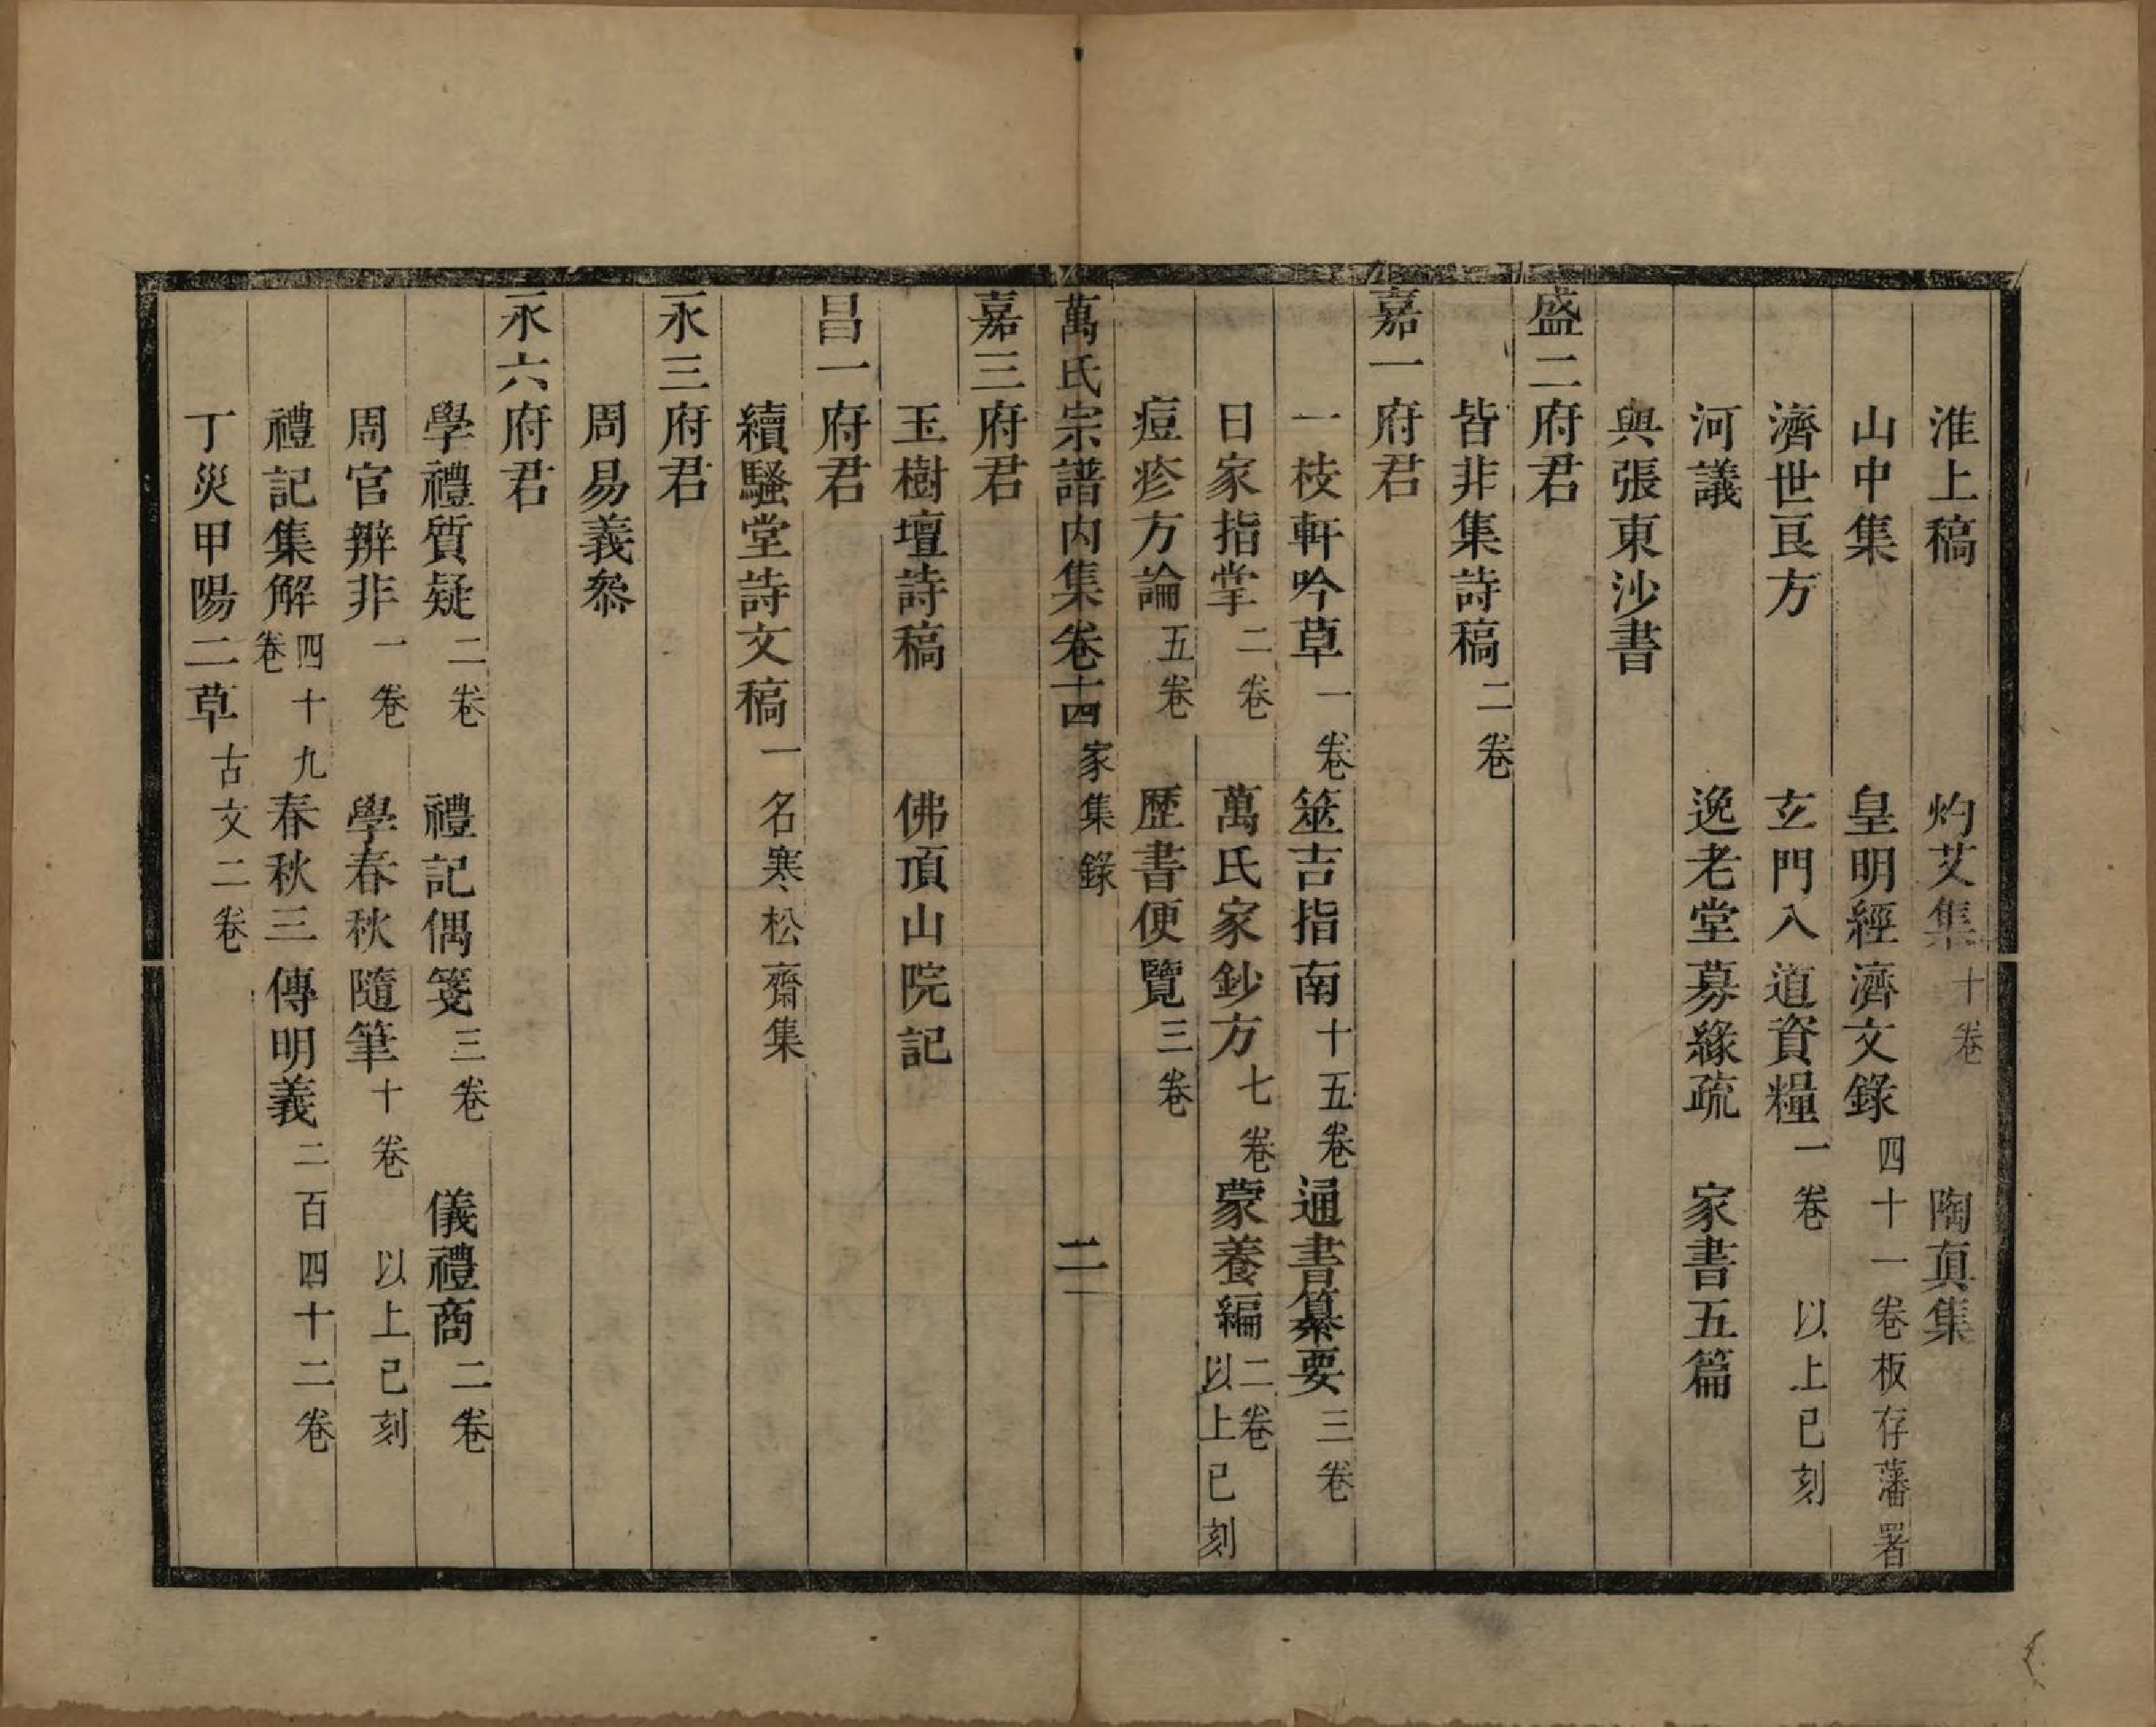 淮上稿　灼艾集十卷　陶眞集
山中集　皇明經濟文錄四十一卷板存藩署
濟世良方　玄門入道資糧一卷　以上已刻
河議　逸老堂募緣疏　家書五篇
與張東沙書
盛二府君
皆非集詩稿二卷
嘉一府君
一枝軒吟草一卷　筮吉指南十五卷　通書纂要三卷
日家指掌二卷　萬氏家鈔方七卷　蒙養編二卷以上已刻
痘疹方論五卷　歷書便覽三卷
萬氏宗譜內集卷十四　家集錄　二
嘉三府君
玉樹壇詩稿　佛頂山院記
昌一府君
續騷堂詩文稿一名寒松齋集
永三府君
周易義叅
永六府君
學禮質疑二卷　禮記偶箋三卷　儀禮商二卷
周官辨非一卷　學春秋隨筆十卷　以上已刻
禮記集解四十九卷　春秋三傳明義二百四十二卷
丁災甲陽二草古文二卷